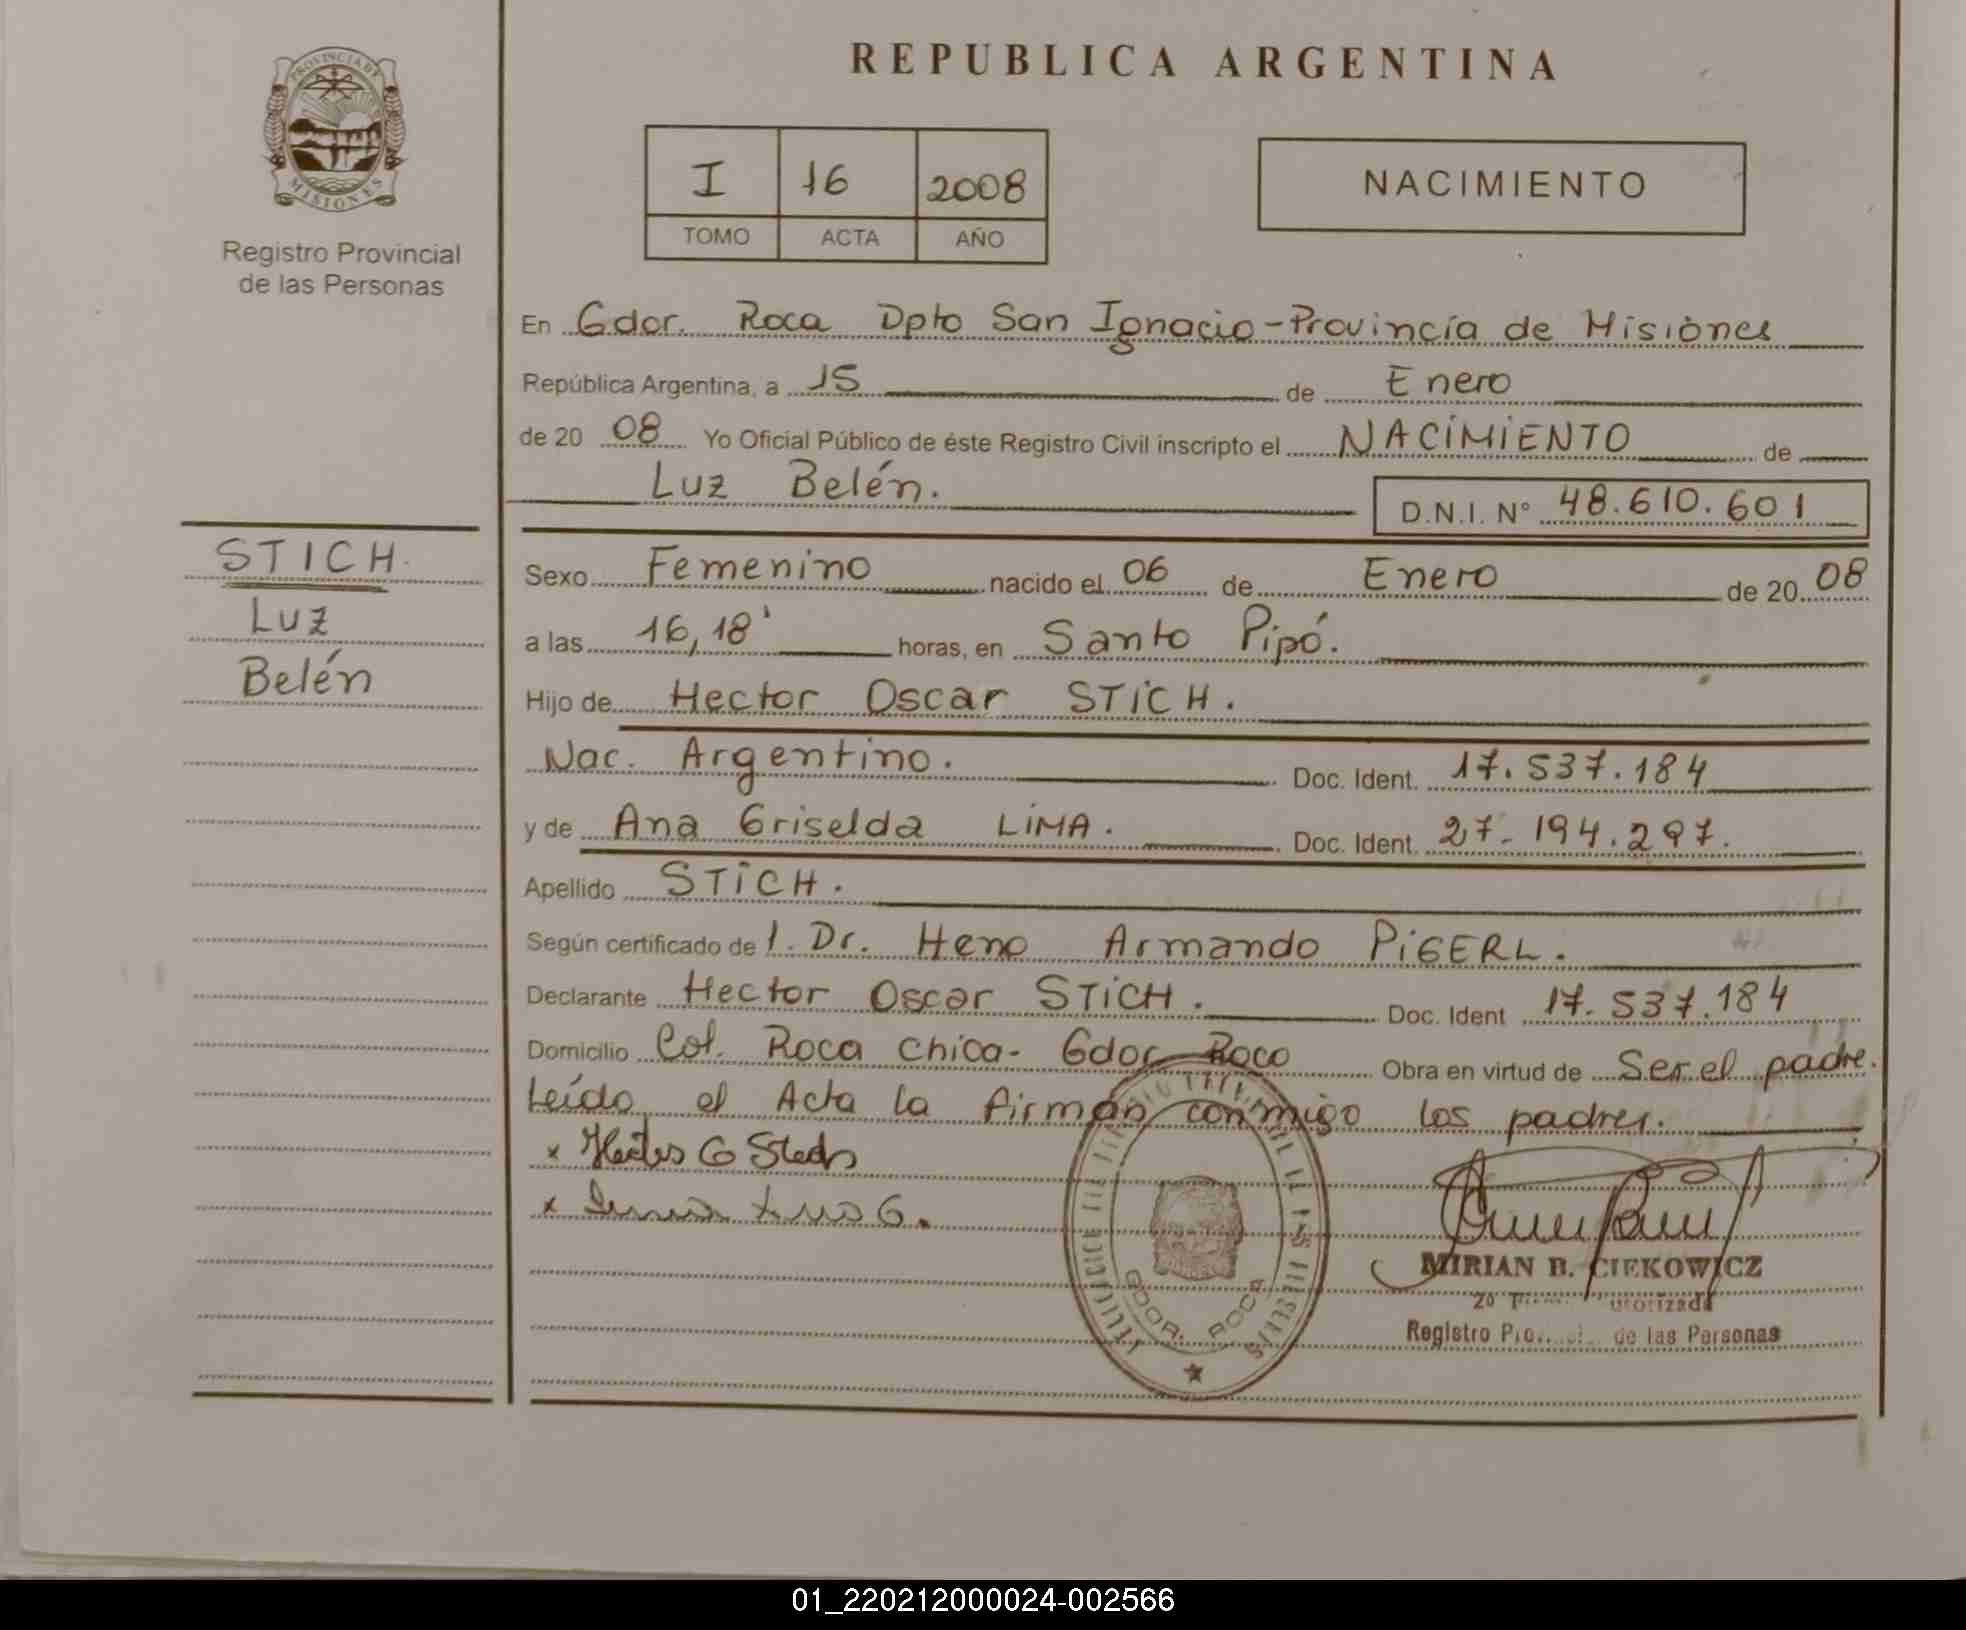 REPUBLICA ARGENTINA
PROVINCIA DE
MISIONES
Registro Provincial
de las Personas
I 16 2008
TOMO ACTA AÑO
NACIMIENTO
En Gdor. Roca Dpto San Ignacio - Provincia de Misiones
República Argentina, a 15 de Enero
de 20 08 Yo Oficial Público de éste Registro Civil inscripto el NACIMIENTO de
Luz Belén. D.N.I. N° 48.610.601
STICH.
Luz
Belén
Sexo Femenino nacido el 06 de Enero de 20 08
a las 16,18' horas, en Santo Pipó.
Hijo de Hector Oscar STICH.
Nac. Argentino. Doc. Ident. 17.537.184
y de Ana Griselda LIMA. Doc. Ident. 27-194.297.
Apellido STICH.
Según certificado de l. Dr. Heno Armando PIGERL.
Declarante Hector Oscar STICH. Doc. Ident 17.537.184
Domicilio Col. Roca Chica - Gdor Roca Obra en virtud de Ser el padre.
Leído el Acta la firman conmigo los padres.
GDOR. ROCA
MIRIAN B. CIEKOWICZ
Registro de las Personas
01_220212000024-002566